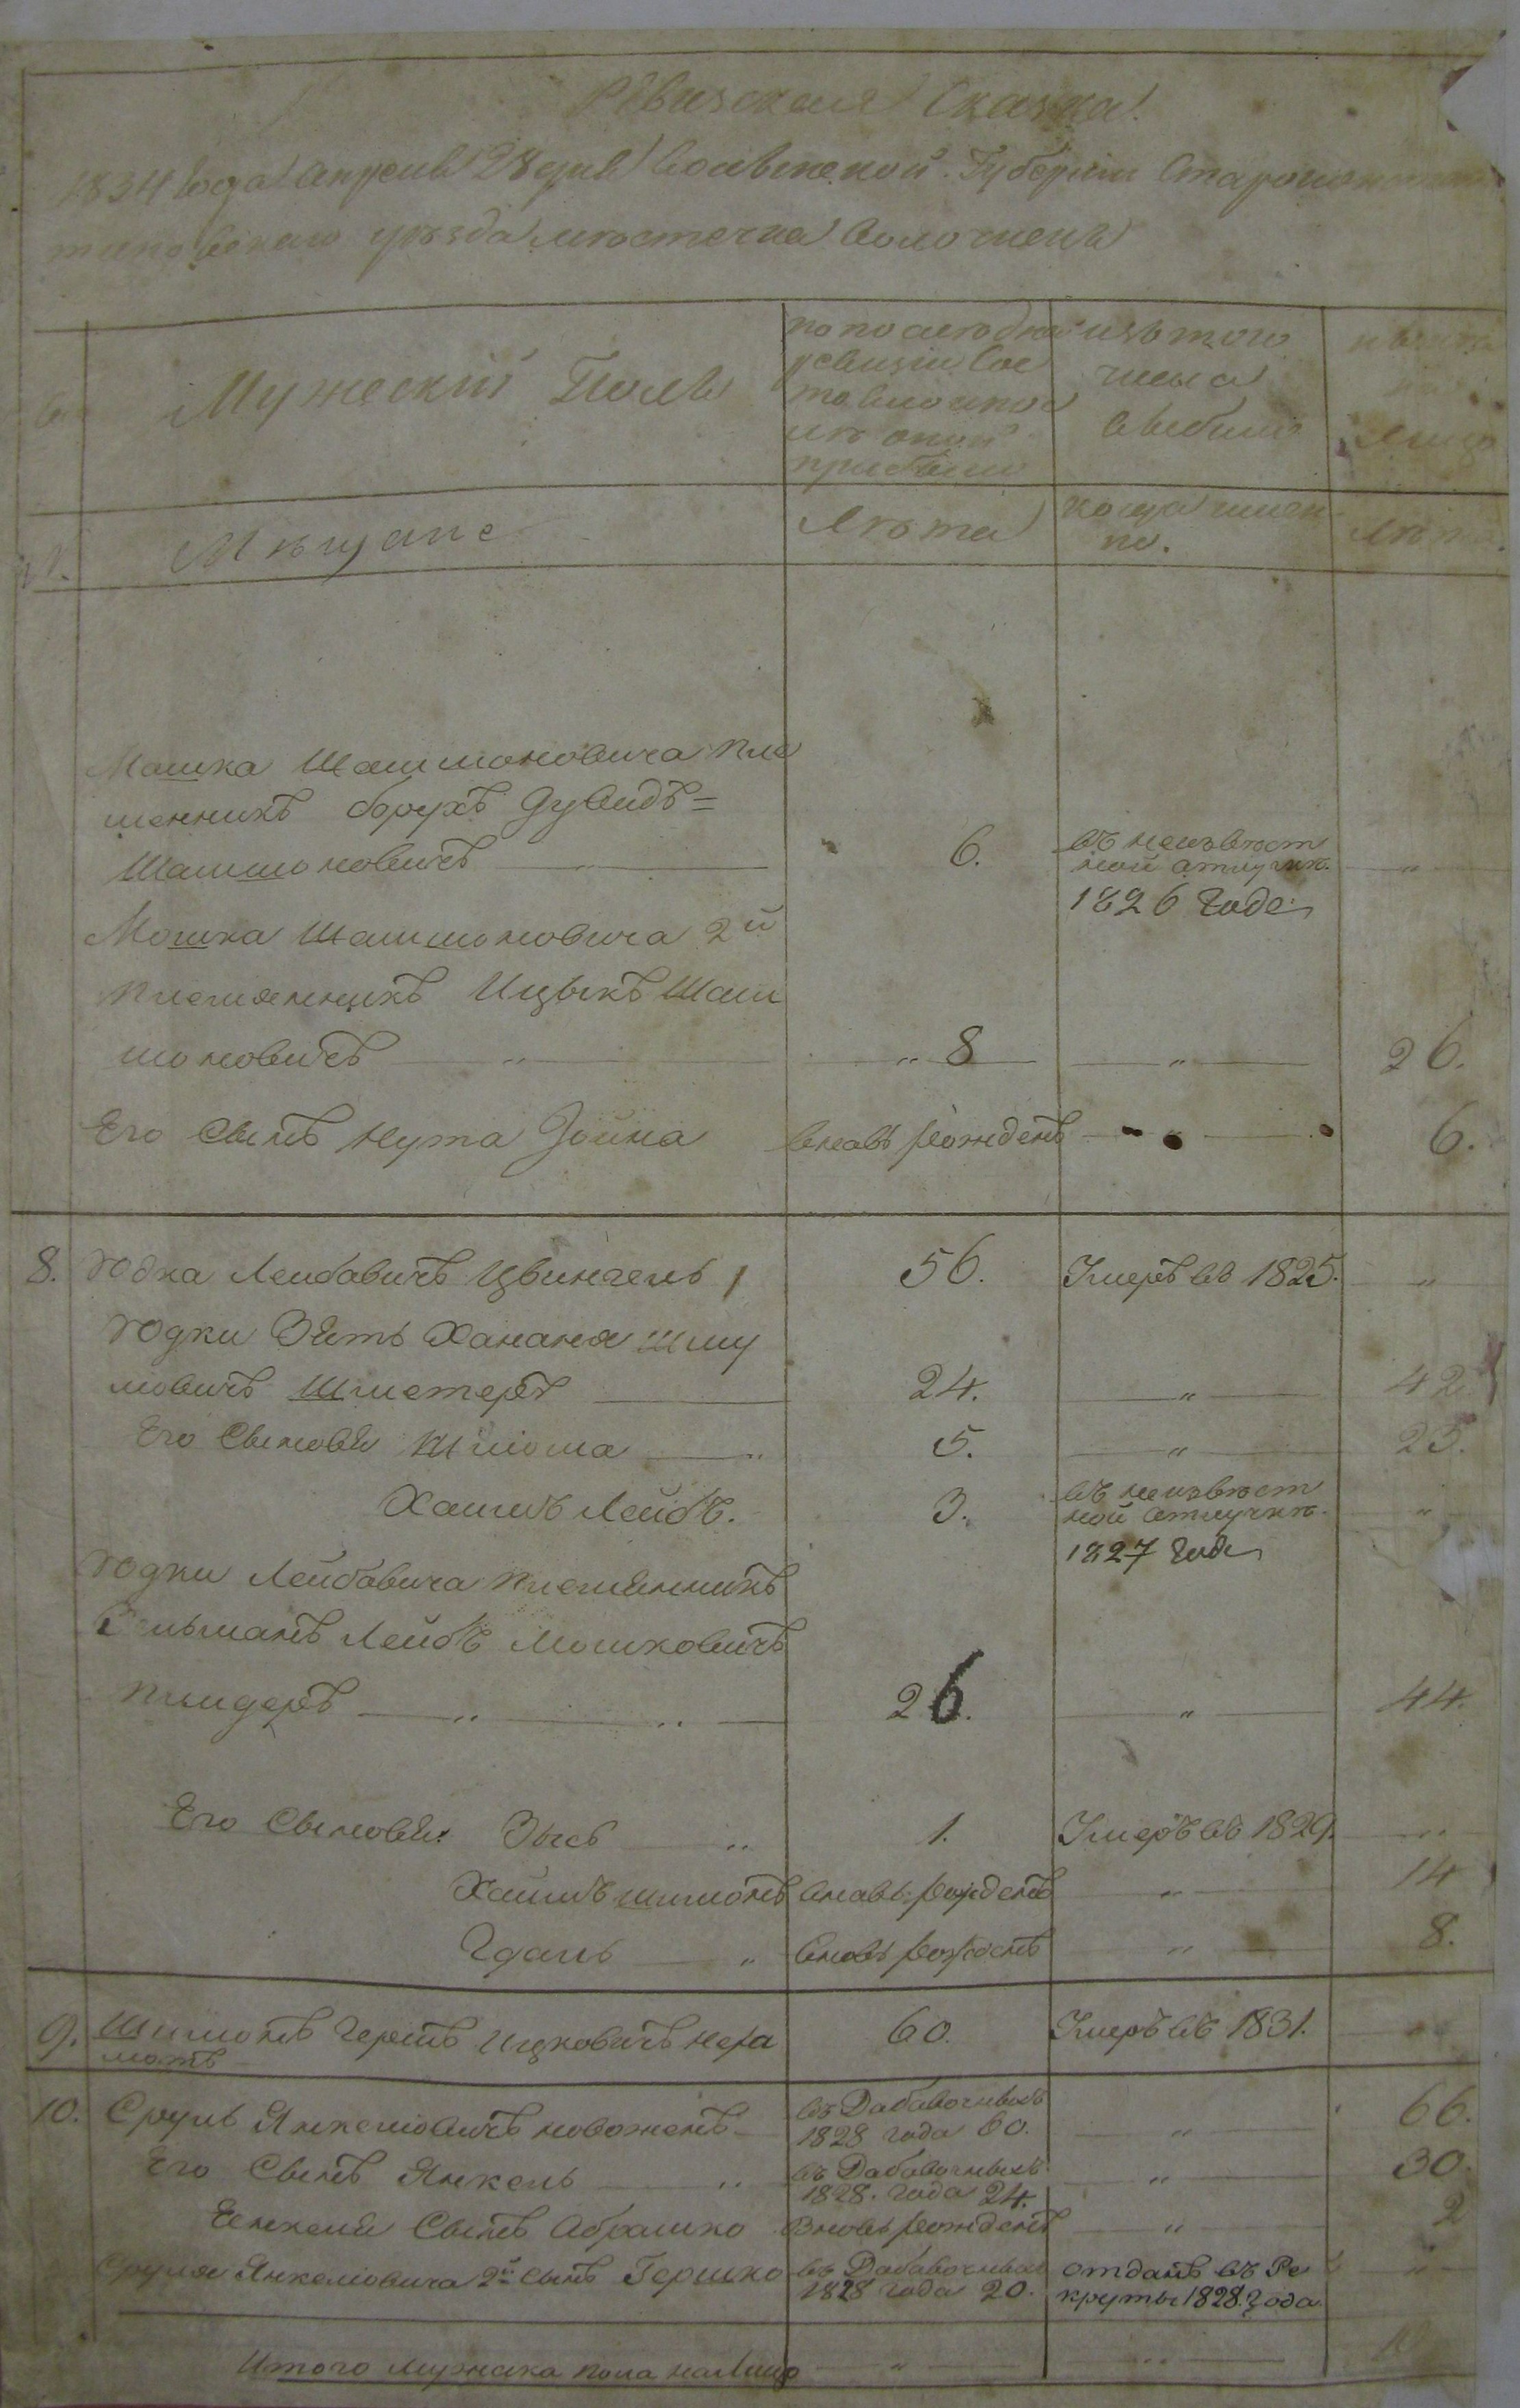 Ревизская Сказка.
1834 года апреля 28 дня Волынской Губернiи Староконстан
тиновскаго уѣзда мѣстечка Волочискъ
Мужескiй Полъ
по последней ревизiи состояло и после оной прибыло
изъ того числа выбыло
нынѣ на лицо
Мѣщане
Лѣта
когда имен
но.
Лѣта.
Мошка Шашмоновича пле
менникъ Борухъ Дувидъ=
Шашмоновичъ 6. въ неизвѣст
ной отлучкѣ. "
1826 Годе.
Мошка Шашмоновича 2й
племянникъ Ицыкъ Шаш
моновичъ " " 8 " 26.
Его Сынъ Нута Зойна вновь рожденъ " 6.
8. Юдка Лейбовичъ Цвингель 56. Умеръ въ 1825. "
Юдки Зять Хананя Шму
ловичъ Шместеръ 24. " 42.
Его Сыновья Шлiома " 5. " 23.
Хаимъ Лейбъ. 3. въ неизвѣст
ной отлучкѣ. "
1827 Годе
Юдки Лейбовича племянникъ
Зельманъ Лейбъ Мошковичъ
пиндеръ " " 26. " 44.
Его Сыновья: Зысь " 1. Умеръ въ 1829. "
Хаимъ Шимонъ вновь рожденъ " 14
Гдаль " вновь рожденъ " 8.
9. Шимонъ Гершъ Ицковичъ 60. Умеръ въ 1831. "
10. Сруль Янкелiовичъ новоженъ въ Дабавочныхъ
1828 года 60. " 66.
Его Сынъ Янкель " въ Дабавочныхъ
1828. года 24. " 30.
Янкеля Сынъ Абрашко Вновь рожденъ " 2
Сруля Янкелiовича 2й сынъ Гершко въ Дабавочных отданъ въ Ре "
1828 года 20. круты 1828. года.
Итого мужска пола на лицо " "